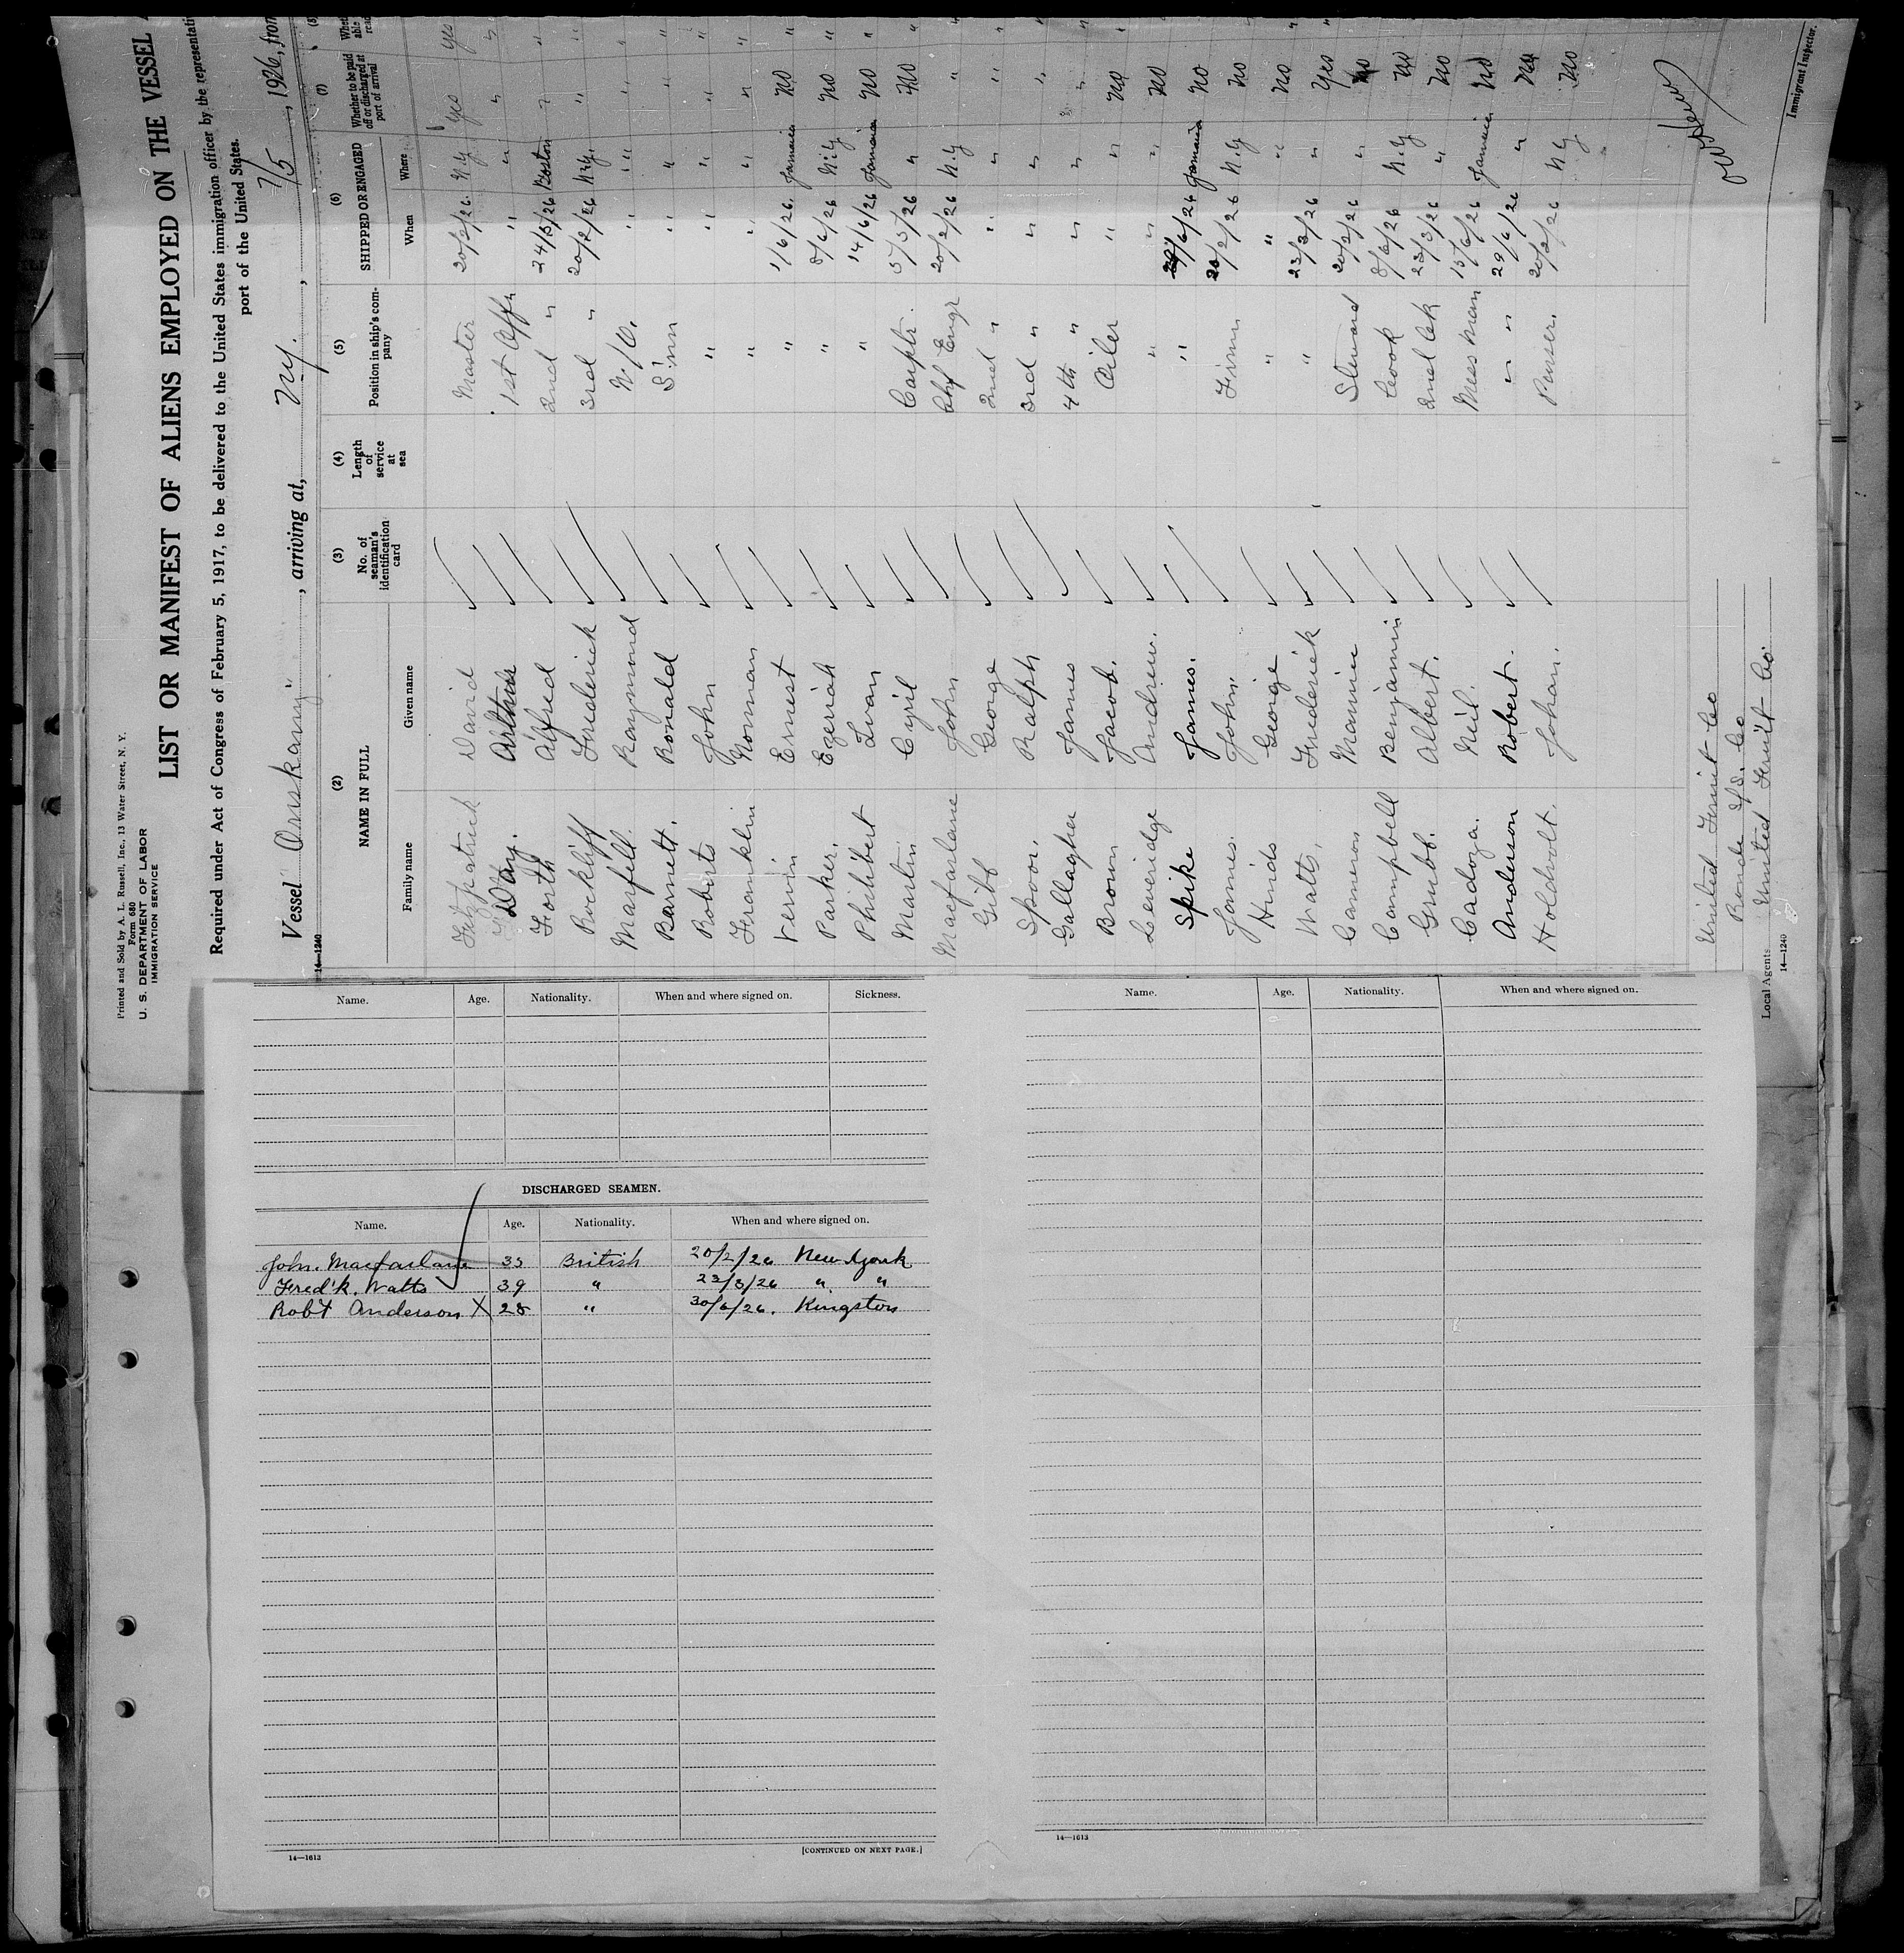 Printed and Sold by A. L. Russell, Inc., 13 Water Street, N. Y.
Form 680
U. S. DEPARTMENT OF LABOR
IMMIGRATION SERVICE
LIST OR MANIFEST OF ALIENS EMPLOYED ON THE VESSEL
Required under Act of Congress of February 5, 1917, to be delivered to the United States immigration officer by the representati
port of the United States.
Vessel "Orsskany", arriving at, N.Y., 7/5, 1926, from
14—1240
(2) (3) (4) (5) (6) (7) (8)
NAME IN FULL No. of seaman's identification card Length of service at sea Position in ship's company SHIPPED OR ENGAGED Whether to be paid off or discharged at port of arrival
Family name Given name When Where
Fitzpatrick David Master 20/2/26 N.Y. yes yes
Day. Arthur 1st Offr " " " "
Forth Alfred 2nd " 24/3/26 Boston " "
Rockliff Frederick 3rd " 20/2/26 N.Y. " "
Marfell. Raymond W/O. " " " "
Barnett. Ronald S'mn " " " "
Roberts John " " " " "
Franklin Norman " " " " "
Vernin Ernest " 1/6/26. Jamaica No "
Parker. Ezeriah " 8/6/26 N.Y. No "
Philibert Ivan " 14/6/26 Jamaica No "
Martin Cyril Carptr. 5/5/26 " No "
Macfarlane John Chf Engr 20/2/26 N.Y " "
Gibb George 2nd " " " " "
Spoor. Ralph 3rd " " " " "
Gallagher James 4th " " " " "
Brown Jacob. Oiler " " No "
Leveridge Andrew. " " " No
Spike James. " /6/26 Jamaica No
James. John. Firmn 20/2/26 N.Y No
Hinds George " " " No "
Watts. Frederick " 23/3/26 " Yes "
Cameron Steward 20/2/26 " No
Campbell Benjamin Cook 8/6/26 N.Y No
Grubb. Albert. 2nd Ck 23/3/26 " No
Cadoza. Neil. Mess Man 15/6/26 Jamaica No
Anderson Robert. " " 29/6/26 " No
Holdsvolt. Johan. Purser. 20/2/26 N.Y No
United Fruit Co
S/S. Co
Local Agents United Fruit Co.
14—1240
Immigrant Inspector.
Name. Age. Nationality. When and where signed on. Sickness.
DISCHARGED SEAMEN.
Name. Age. Nationality. When and where signed on.
John. Macfarlane 35 British 20/2/26 New York
Fred'k. Watts 39 " 23/3/26 " "
Rob't Anderson X 28 " 30/6/26. Kingston
14—1613
[CONTINUED ON NEXT PAGE.]
Name. Age. Nationality. When and where signed on.
14—1613